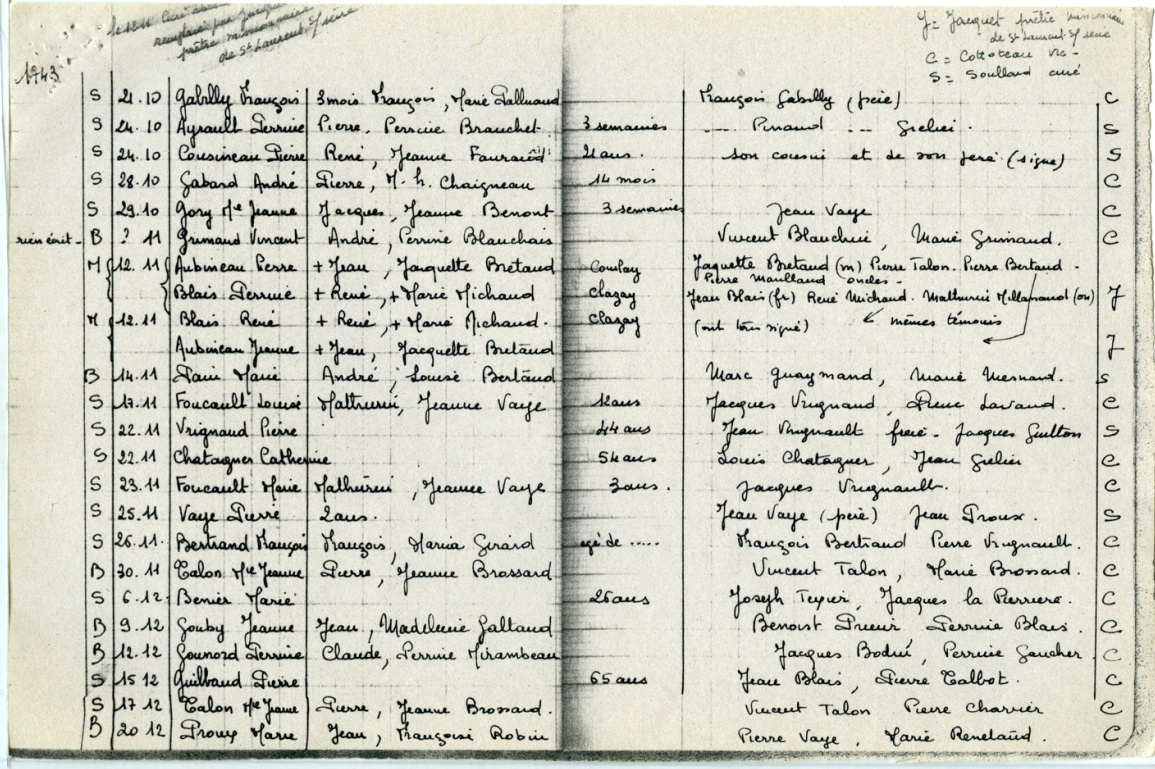 le 12.11
remplacé par Jacquet
prêtre missionnaire
de St Laurent s/ sèvre
J = Jacquet prêtre missionnaire
de St Laurent s/ sèvre
C = Cottoteau vic -
S = Soullard curé
1743
S 21.10 Gabilly François 3 mois François, Marie François Gabilly (père) C
S 24.10 Ayrault Perrine Pierre, Perrine Branchet 3 semaines --- Pinaud --- Grelier. S
S 24.10 Cousineau Pierre René, Jeanne 21 ans. son cousin et de son père (signe) S
S 28.10 Gabard André Pierre, M. h. Chaigneau 14 mois C
S 29.10 Gory Me Jeanne Jacques, Jeanne Benont 3 semaines Jean Vaye C
rien écrit - B ? 11 Grimaud Vincent André, Perrine Blanchais Vincent Blanchin, Marie Grimaud. C
M 12.11 Aubineau Pierre + Jean, Jacquette Bretaud Coulay Jaquette Bretaud (m) Pierre Talon. Pierre Bertaud -
Pierre Maulland oncles -
Blais Perrine + René, + Marie Michaud Clazay Jean Blais (fr) René Michaud. Mathurin (on) J
M 12.11 Blais René + René, + Marie Michaud. Clazay (ont tous signé) mêmes témoins
Aubineau Jeanne + Jean, Jacquette Bretaud J
B 14.11 Marie André, Louise Bertaud Marc Guaymand, Marie Mesnard. S
S 17.11 Foucault Louise Mathurin, Jeanne Vaye 12 ans Jacques Vrignaud, Pierre Lavaud. C
S 22.11 Vrignaud Pierre 44 ans Jean Vrignault frère - Jacques Guitton S
S 22.11 Chataigner Catherine 54 ans Louis Chataigner, Jean Grelier C
S 23.11 Foucault Marie Mathurin, Jeanne Vaye 3 ans. Jacques Vrignault. C
S 25.11 Vaye Pierre 2 ans. Jean Vaye (père) Jean Proux. S
S 26.11. Bertrand François François, Maria Girard agé de ..... François Bertrand Pierre Vrignault. C
B 30.11 Talon Me Jeanne Pierre, Jeanne Brossard Vincent Talon, Marie Brossard. C
S 6.12 Benier Marie 26 ans Joseph Texier, Jacques la Perriere. C
B 9.12 Gouby Jeanne Jean, Madeleine Galtaud Benoist Prieur Perrine Blais. C
B 12.12 Gounord Perrine Claude, Perrine Mirambeau Jacques Bodin, Perrine Gaucher C
S 15 12 Guilbaud Pierre 65 ans Jean Blais, Pierre Talbot. C
S 17 12 Talon Me Jeanne Pierre, Jeanne Brossard. Vincent Talon Pierre Charrier C
B 20 12 Proux Marie Jean, Françoise Robin Pierre Vaye, Marie Renelaud. C